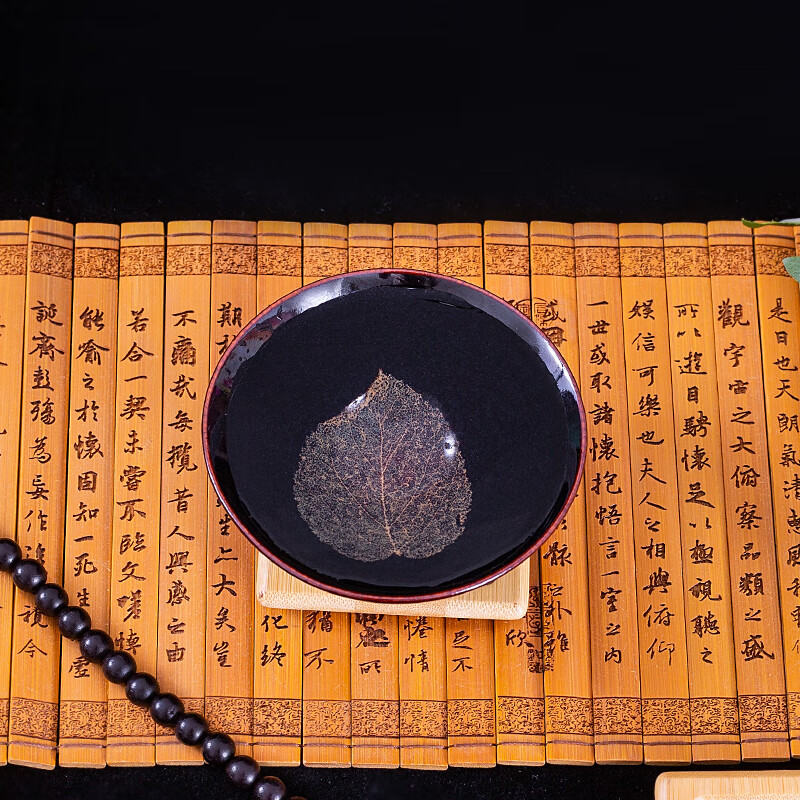 是日也天朗氣清惠風
觀宇宙之大俯察品類之盛
所以遊目騁懷足以極視聽之
娛信可樂也夫人之相與俯仰
一世或取諸懷抱悟言一室之内
或因
形骸之外雖
欣
足不
惓情
所
猶不
化終
期
生亦大矣豈
不痛哉每攬昔人興感之由
若合一契未嘗不臨文嗟悼
能喻之於懷固知一死生
誕齊彭殤為妄作後
今